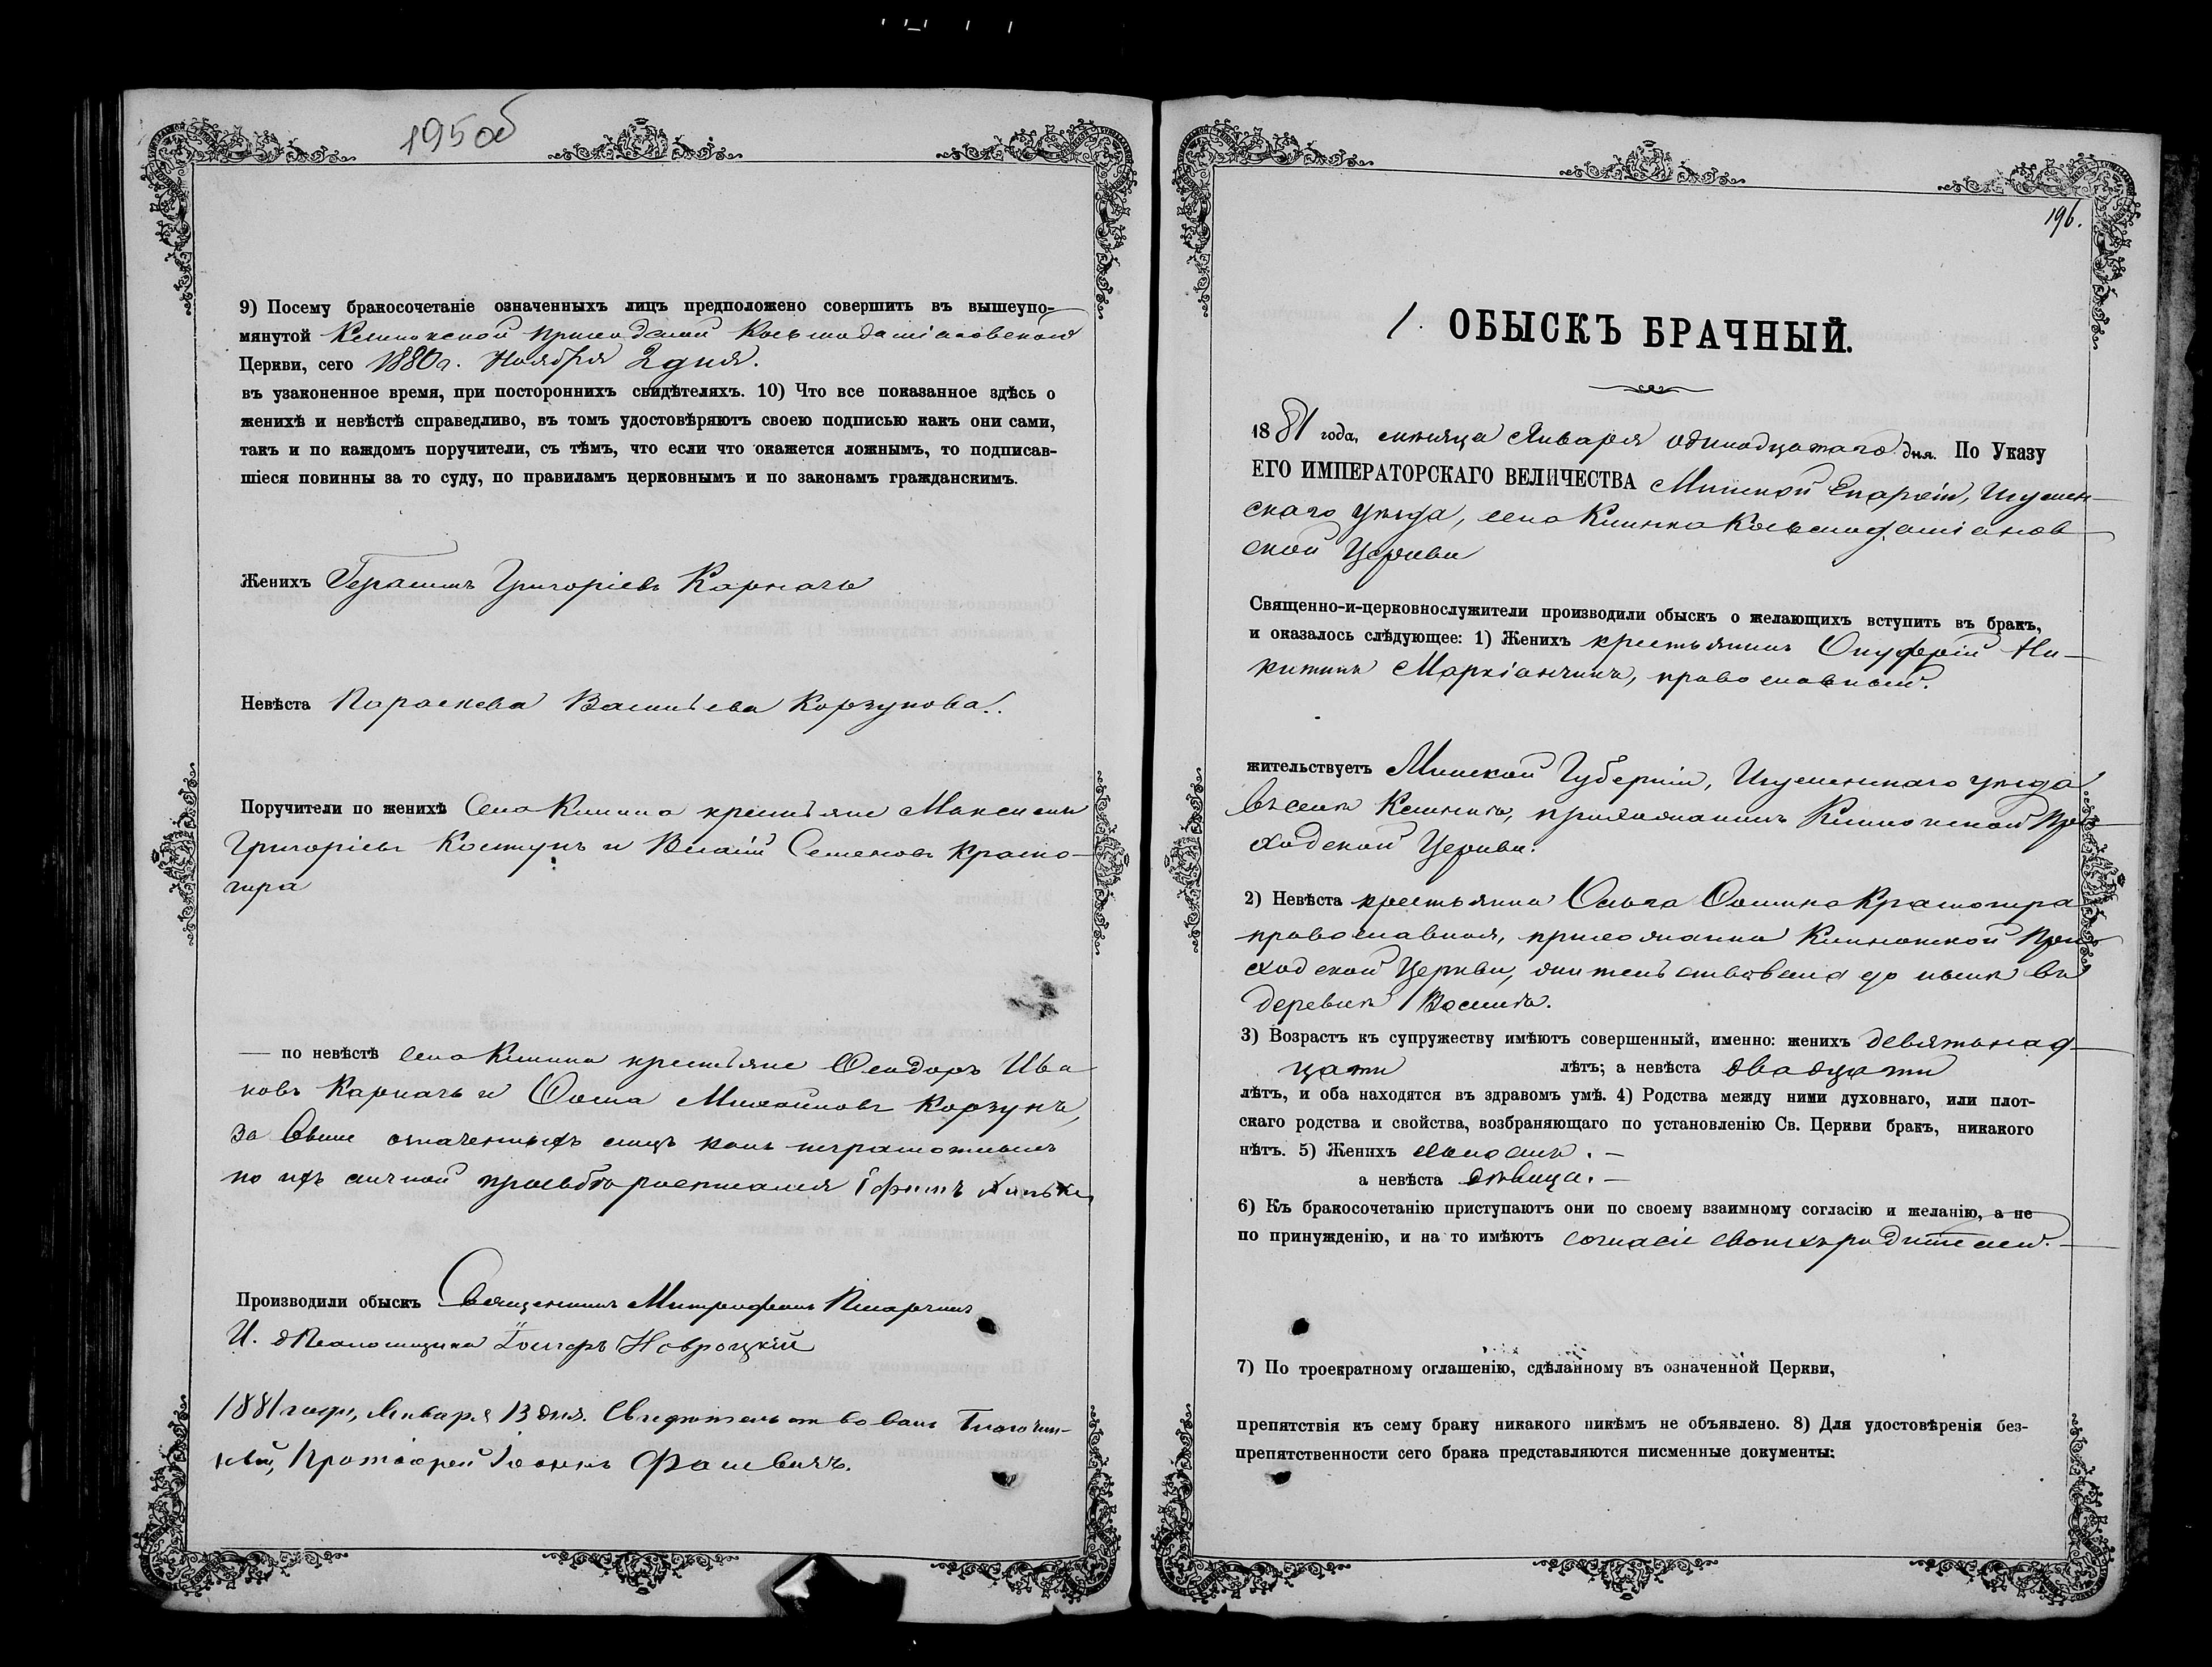 195 об
9) Посему бракосочетаніе означенныхъ лицъ предположено совершить въ вышеупо-
мянутой Клинокской приходской Косьмодаміановской
Церкви, сего 1880 г. Ноября 2 дня.
въ узаконенное время, при постороннихъ свидѣтеляхъ. 10) Что все показанное здѣсь о
женихѣ и невѣстѣ справедливо, въ томъ удостовѣряютъ своею подписью какъ они сами,
такъ и по каждомъ поручители, съ тѣмъ, что если что окажется ложнымъ, то подписав-
шіеся повинны за то суду, по правиламъ церковнымъ и по законамъ гражданскимъ.
Женихъ Герасимъ Григоріевъ Карначъ
Невѣста Параскева Васильева Корзунова.
Поручители по женихѣ Села Клинка крестьяне Максимъ
Григоріевъ Костунъ и Власій Семеновъ Красно-
гира
— по невѣстѣ Села Клинка крестьяне Ѳеодоръ Ива
новъ Карначъ и Ѳома Михайловъ Корзунъ,
за выше означенныхъ лицъ какъ неграмотныхъ
по ихъ личной прозьбѣ росписался
Производили обыскъ Священникъ Митрофанъ
И. д. Псаломщика Новроцкій
1881 года, Января 13 дня. Свидѣтельствовалъ Благочин-
ный, Протоіерей Іоаннъ
196.
1. ОБЫСКЪ БРАЧНЫЙ.
1881 года, мѣсяца Января одинадцатаго дня. По Указу
ЕГО ИМПЕРАТОРСКАГО ВЕЛИЧЕСТВА Минской Епархіи, Игумен-
скаго уѣзда, села Клинка Косьмодаміанов
ской Церкви
Священно-и-церковнослужители производили обыскъ о желающихъ вступить въ бракъ,
и оказалось слѣдующее: 1) Женихъ крестьянинъ Онуфрій Ни-
китинъ Маркіанчикъ, православный.
жительствуетъ Минской Губерніи, Игуменскаго уѣзда
въ селѣ Клинкѣ, прихожанинъ Клинокской При-
ходской Церкви.
2) Невѣста крестьянка Ольга Ѳомина Красногира
православная, прихожанка Клинокской При-
ходской Церкви, жительствовала до нынѣ въ
деревнѣ
3) Возрастъ къ супружеству имѣютъ совершенный, именно: женихъ девятьнад-
цати лѣтъ; а невѣста двадцати
лѣтъ, и оба находятся въ здравомъ умѣ. 4) Родства между ними духовнаго, или плот-
скаго родства и свойства, возбраняющаго по установленію Св. Церкви бракъ, никакого
нѣтъ. 5) Женихъ холостъ. —
а невѣста дѣвица. —
6) Къ бракосочетанію приступаютъ они по своему взаимному согласію и желанію, а не
по принужденію, и на то имѣютъ согласіе своихъ родителей. —
7) По троекратному оглашенію, сдѣланному въ означенной Церкви,
препятствія къ сему браку никакого никѣмъ не объявлено. 8) Для удостовѣренія без-
препятственности сего брака представляются писменные документы: